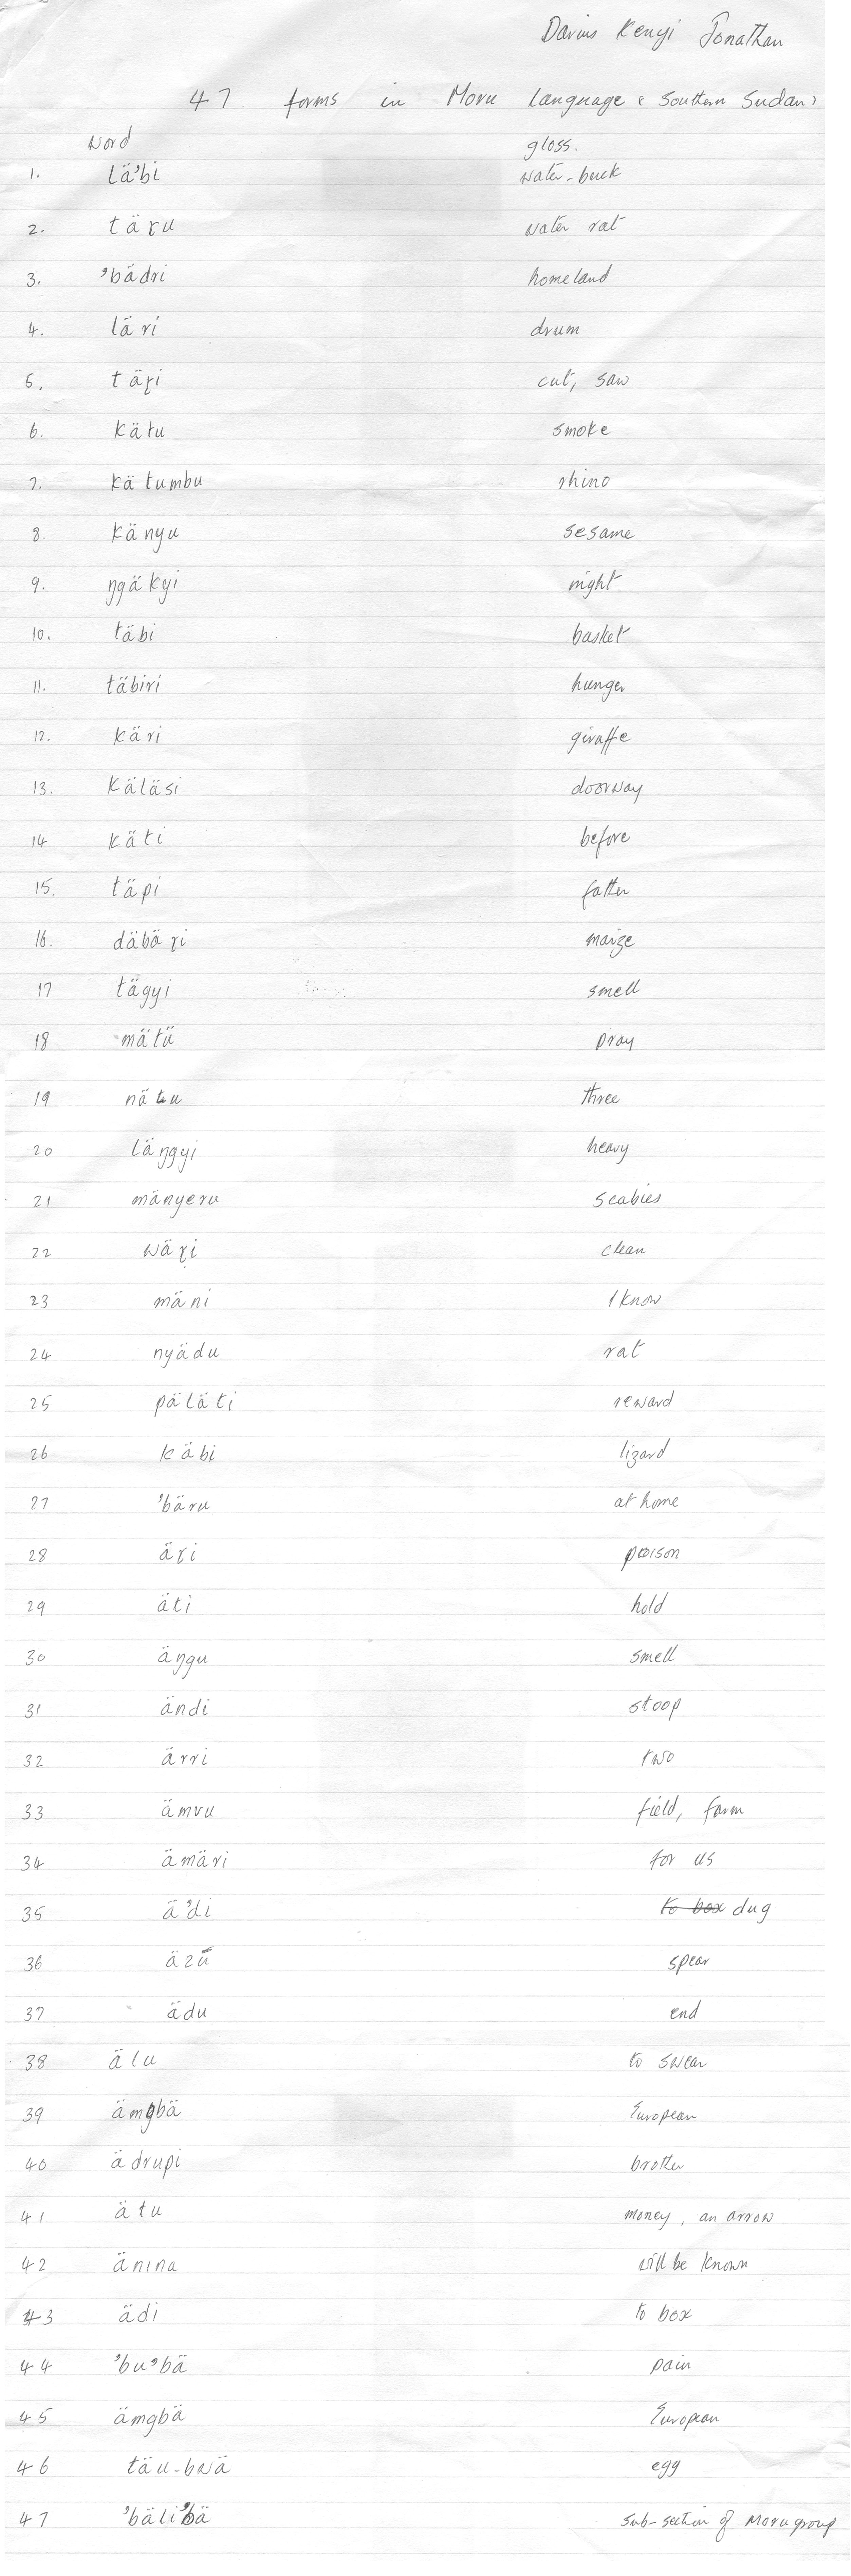 Darius Kenyi Jonathan
47 forms in Moru language (Southern Sudan)
word gloss.
1. lä'bi water-buck
2. täṛu water rat
3. 'bädri homeland
4. läri drum
5. täṛi cut, saw
6. kätu smoke
7. kätumbu rhino
8. känyu sesame
9. ŋgäkyi night
10. täbi basket
11. täbiri hunger
12. käri giraffe
13. käläsi doorway
14 käti before
15. täpi fatten
16. däbäṛi maize
17 tägyi smell
18 mätü pray
19 nätu three
20 läŋgyi heavy
21 mänyeru scabies
22 wäṛi clean
23 mäni I know
24 nyädu rat
25 päläti reward
26 käbi lizard
27 'bäru at home
28 äṛi poison
29 äti hold
30 äŋgu smell
31 ändi stoop
32 ärri two
33 ämvu field, farm
34 ämäri for us
35 ä'di to box dug
36 äzu spear
37 ädu end
38 älu to swear
39 ämgbä European
40 ädrupi brother
41 ätu money, an arrow
42 änina will be known
43 ädi to box
44 'bu'bä pain
45 ämgbä European
46 täu-bwä egg
47 'bäli'bä sub-section of Moru group